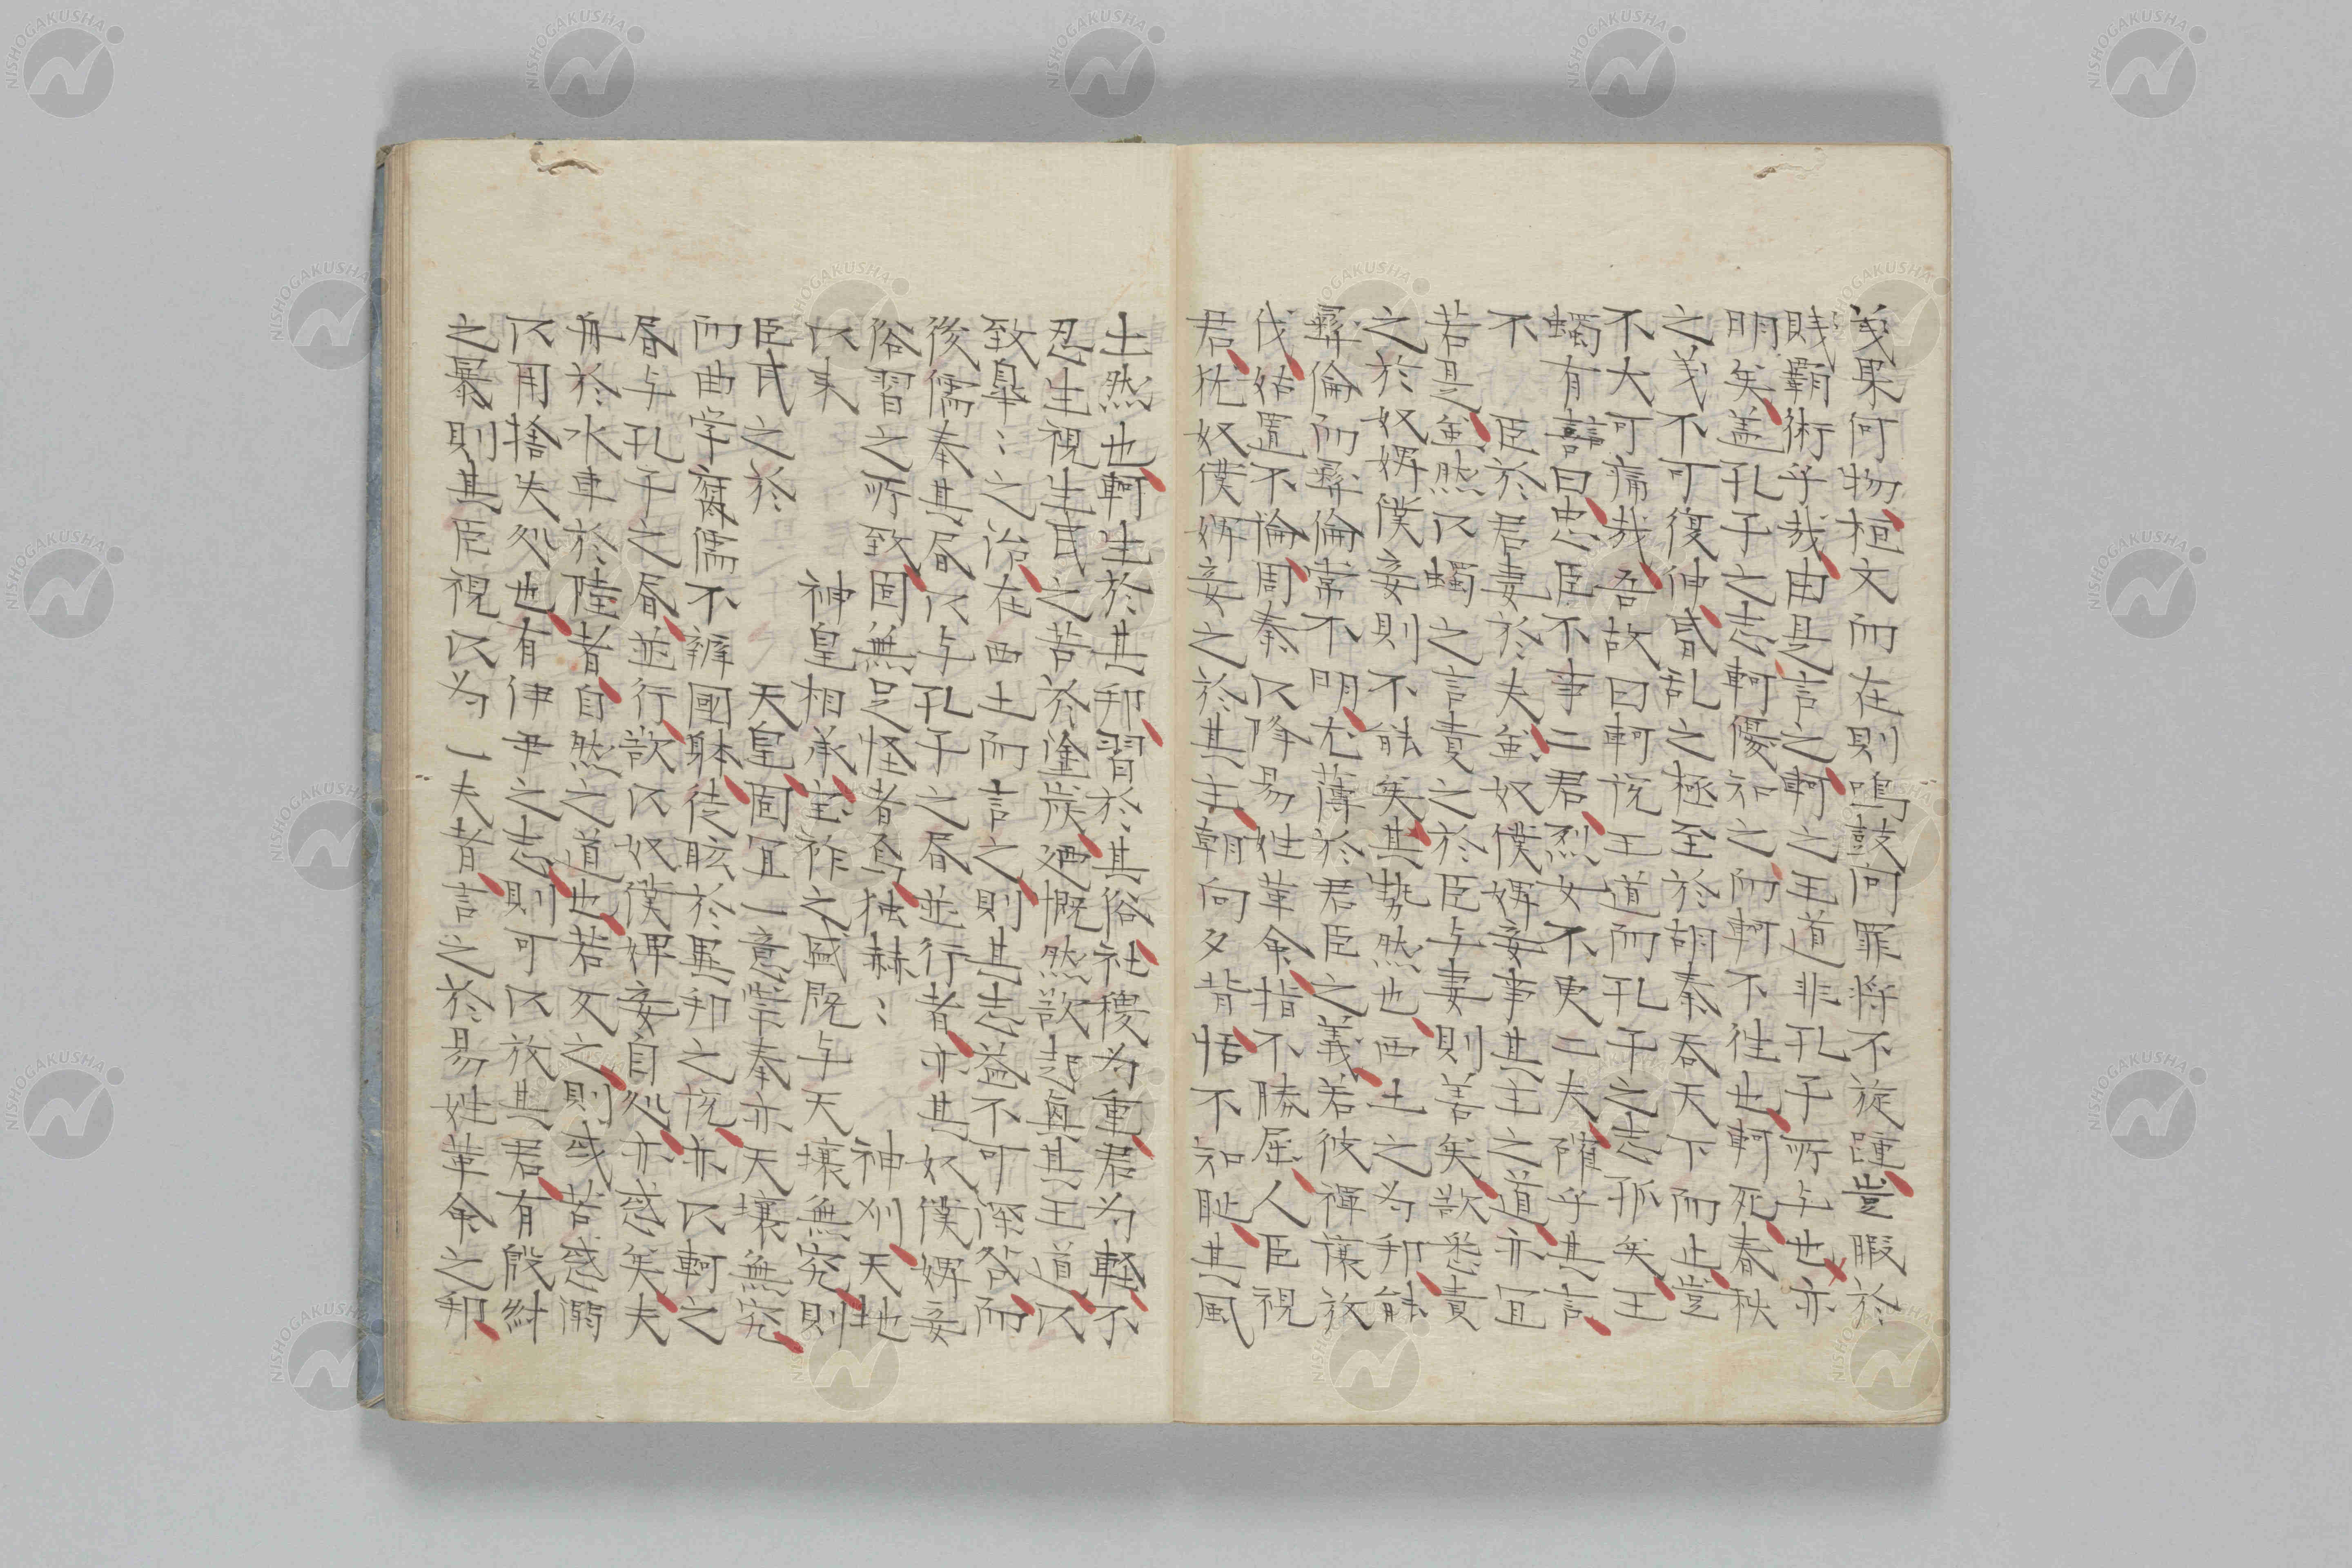 義果何物桓文而在則鳴鼓問罪将不旋踵豈暇於
賎覇術乎哉由是言之軻之王道非孔子所与也亦
明矣盖孔子之志軻優知之而軻不徃也軻死春秋
之義不可復伸昏乱之極至於胡秦吞天下而止豈
不大可痛哉吾故曰軻説王道而孔子之志孤矣王
蠋有言曰忠臣不事二君烈女不更二夫確乎其言
不 臣於君妻於夫虽奴僕婢妾事其主之道亦冝
若是虽然以蠋之言責之於臣与妻則善矣欲悉責
之於奴婢僕妾則不能矣其勢然也西土之為邦能
彛倫而彛倫常不明尤薄於君臣之義若彼禅譲放
伐姑置不論周秦以降易姓革命指不勝屈人臣視
君犹奴僕婢妾之於其主朝向夕背恬不知耻其風
土然也軻生於其邦習於其俗社稷为重君为軽不
忍生視生民之苦於塗炭廼慨然欲起興其王道以
致皐〻之治在西土而言之則其志益不可深咎而
後儒奉其書以与孔子之書並行者亦其奴僕婢妾
俗習之所致固無足怪者爲独赫〻 神州天地
以来 神皇相承宝祚之盛既与天壤無究則
臣民之於 天皇固冝一意崇奉亦天壤無究
而曲学腐儒不辨國躰徒眩於異邦之説亦以軻之
書与孔子之書並行欲以奴僕婢妾自処亦惑矣夫
舟於水車於陸者自然之道也若反之則或苦惑溺
以用捨失処也有伊尹之志則可以放其君有殷紂
之暴則其臣視以为一夫者言之於易姓革命之邦